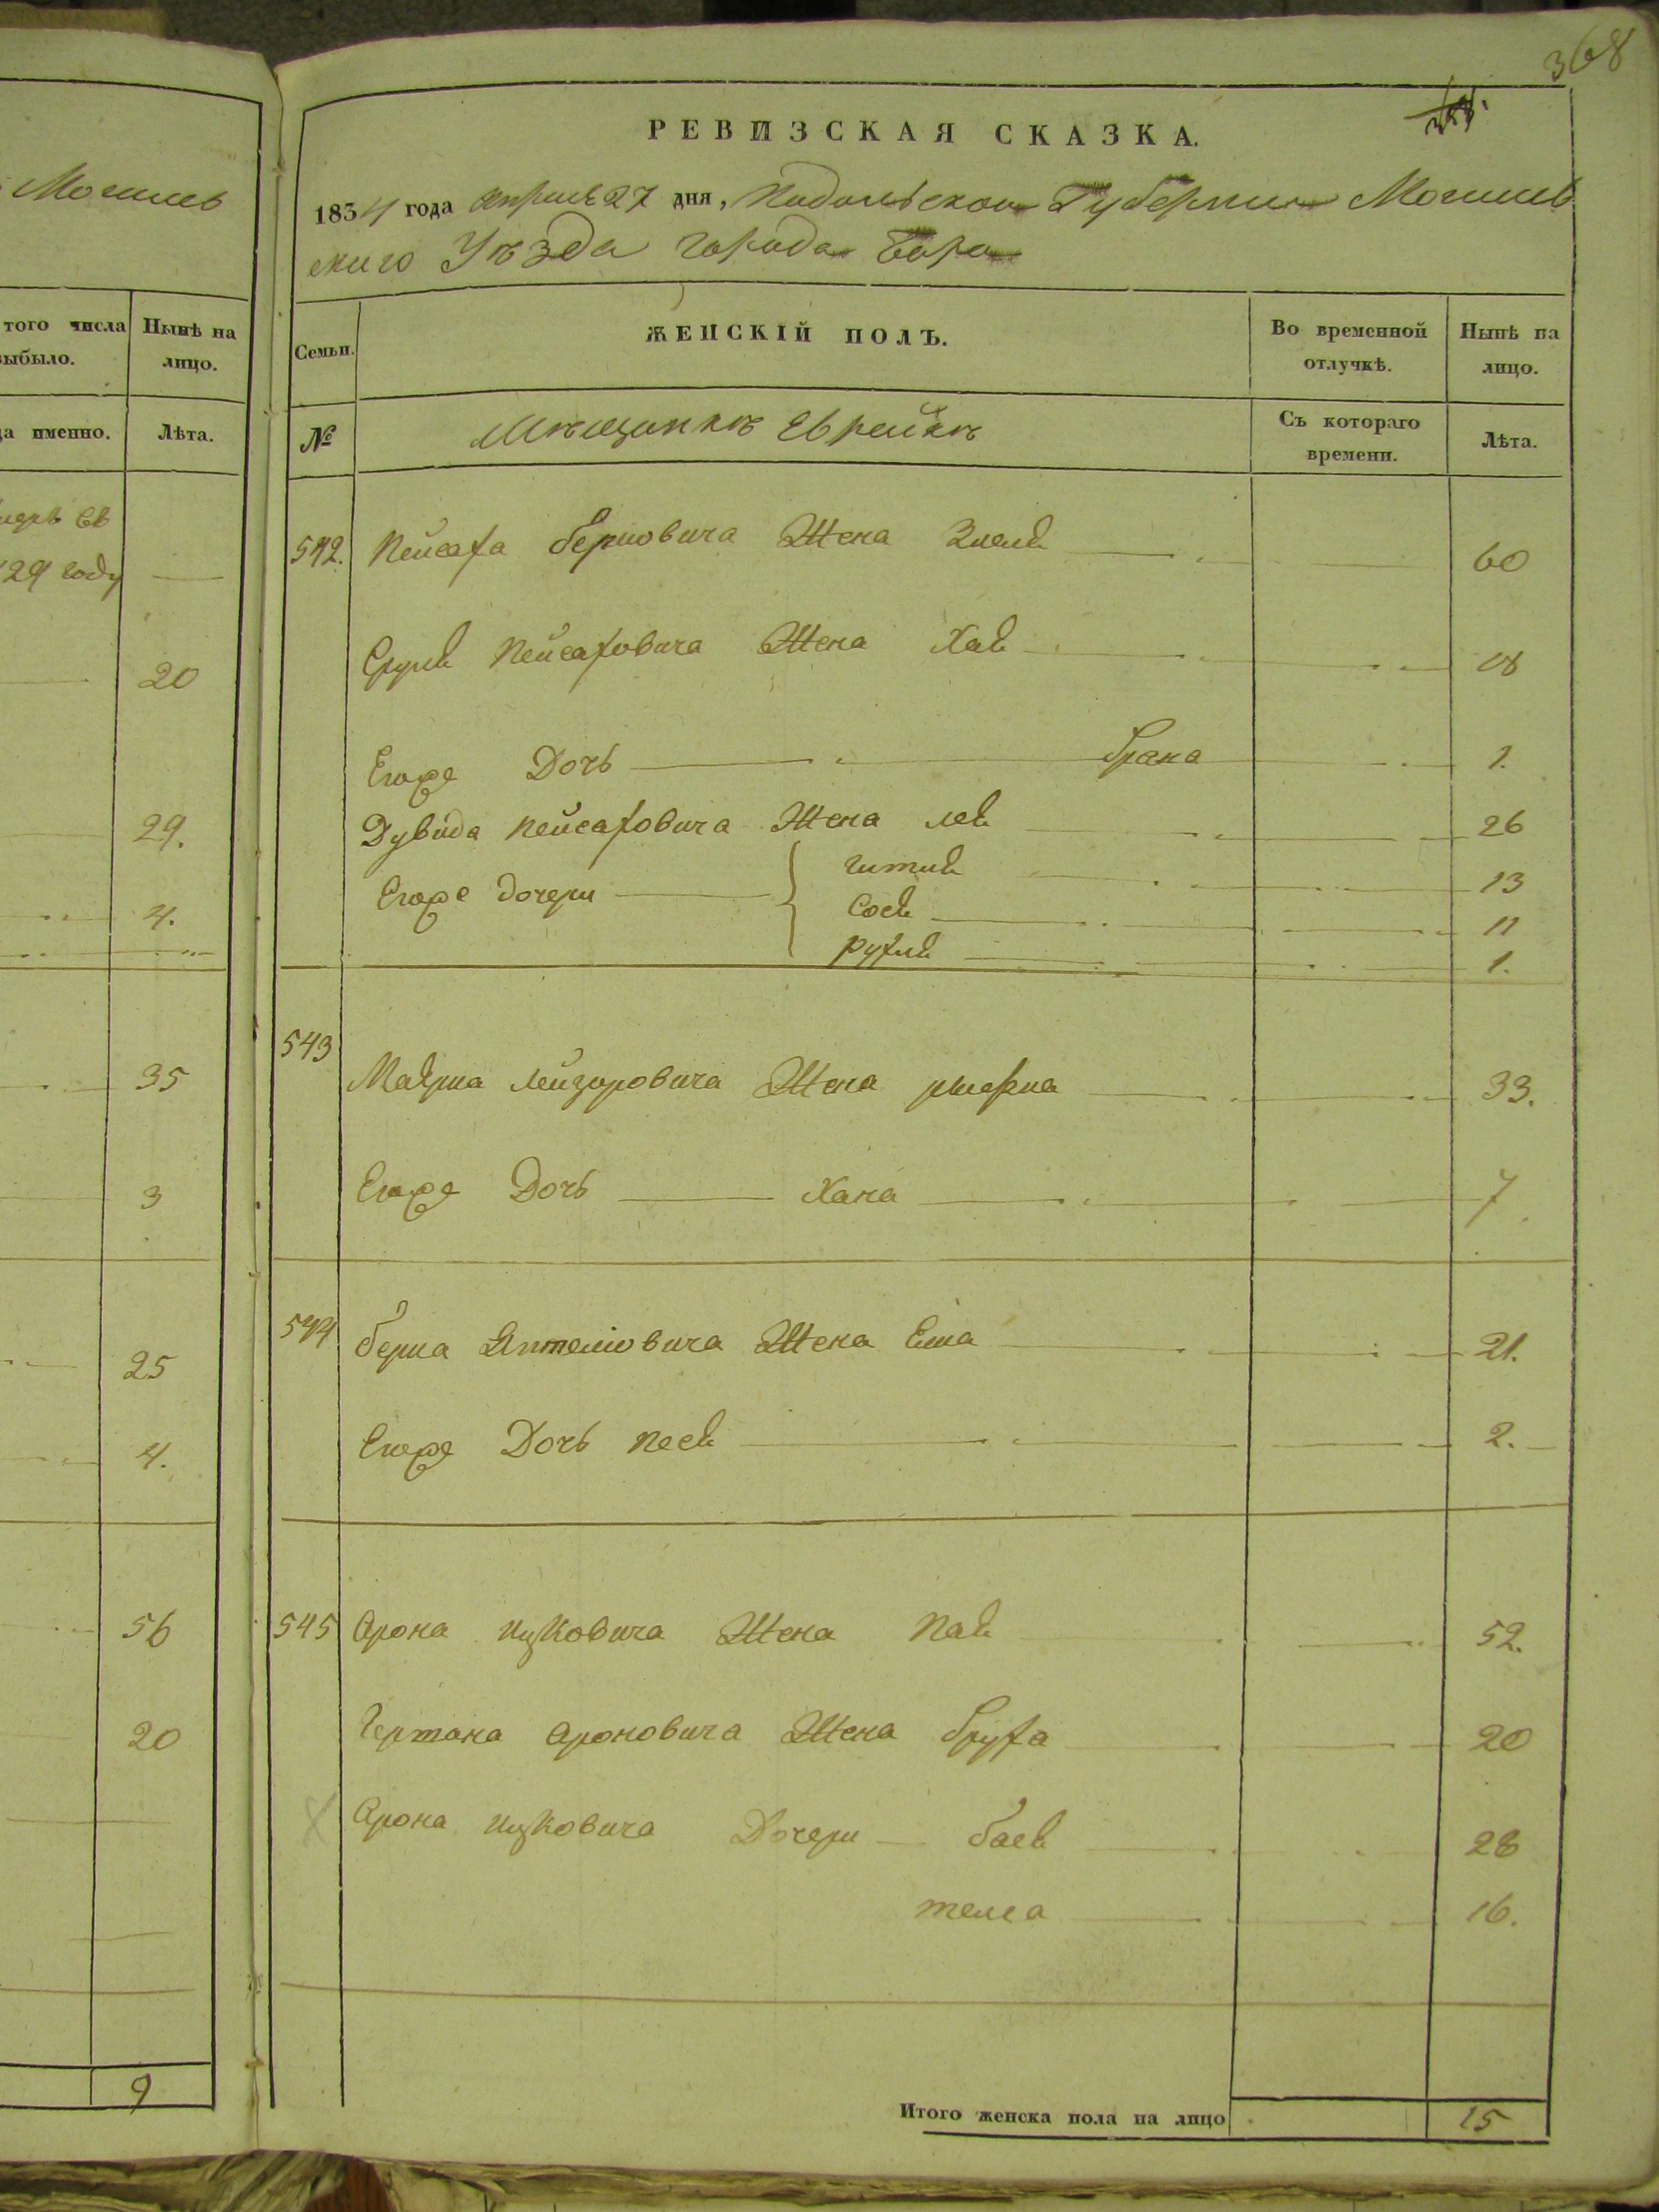 Могилев
того числа
выбыло.
Нынѣ на
лицо.
да именно.
Лѣта.
29 году
20
29.
4.
35
3
25
4.
56
20
9
368
РЕВИЗСКАЯ СКАЗКА.
1834 года апреля 27 дня, Подольской Губернии Могилев
скаго Уѣзда города Бара
Семьи.
ЖЕНСКІЙ ПОЛЪ.
Во временной
отлучкѣ.
Нынѣ на
лицо.
№
Мѣщанкѣ Еврейкѣ
Съ котораго
времени.
Лѣта.
542. Пейсаха Берковича Жена 60
Сруля Пейсаховича Жена Хая 18
Егоже Дочь Брана 1.
Дувида Пейсаховича Жена Лея 26
Егоже дочери Гитля 13
Сося 11
Рухля 1.
543
Лейзоровича Жена 33.
Егоже Дочь Хана 7
544 Берка Жена 21.
Егоже Дочь Песя 2.
545 Арона Ицковича Жена Пая 52.
Гертана Ароновича Жена Бруха 20
Арона Ицковича Дочери Бася 28
16.
Итого женска пола на лицо 15